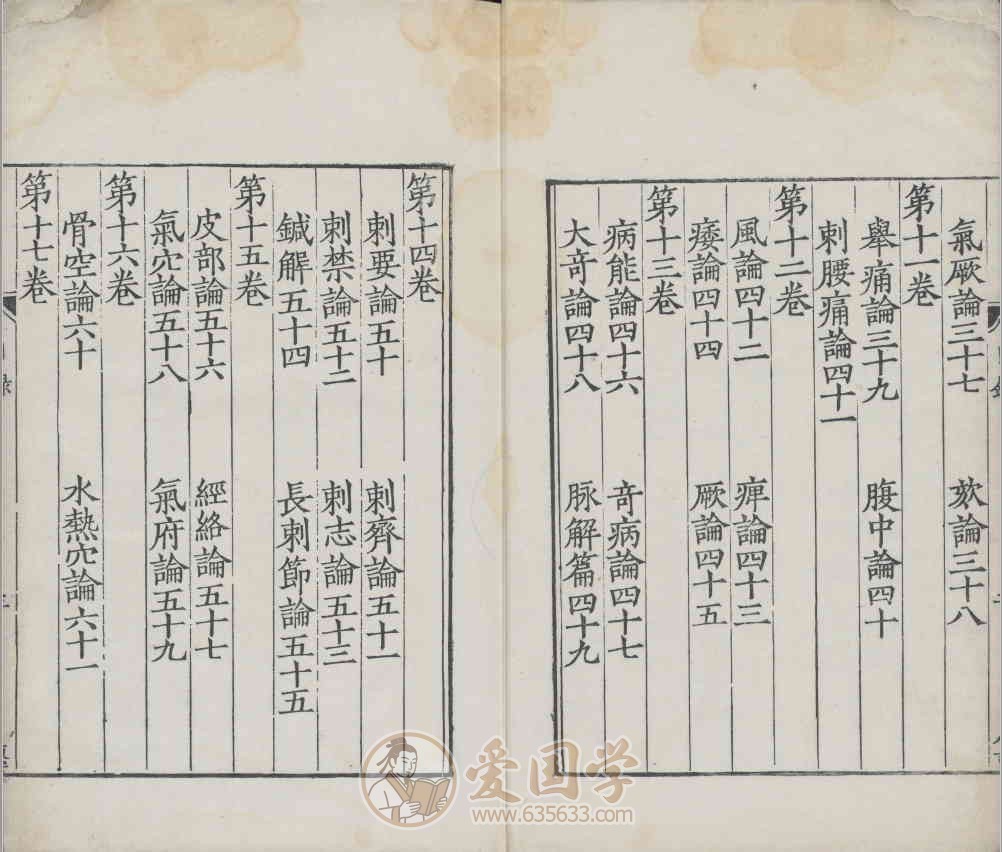 氣厥論三十七　欬論三十八
第十一卷
舉痛論三十九　腹中論四十
刺腰痛論四十一
第十二卷
風論四十二　痺論四十三
痿論四十四　厥論四十五
第十三卷
病能論四十六　奇病論四十七
大奇論四十八　脉解篇四十九
第十四卷
刺要論五十　刺齊論五十一
刺禁論五十二　刺志論五十三
鍼解五十四　長刺節論五十五
第十五卷
皮部論五十六　經絡論五十七
氣穴論五十八　氣府論五十九
第十六卷
骨空論六十　水熱穴論六十一
第十七卷
爱国学
www.635633.com